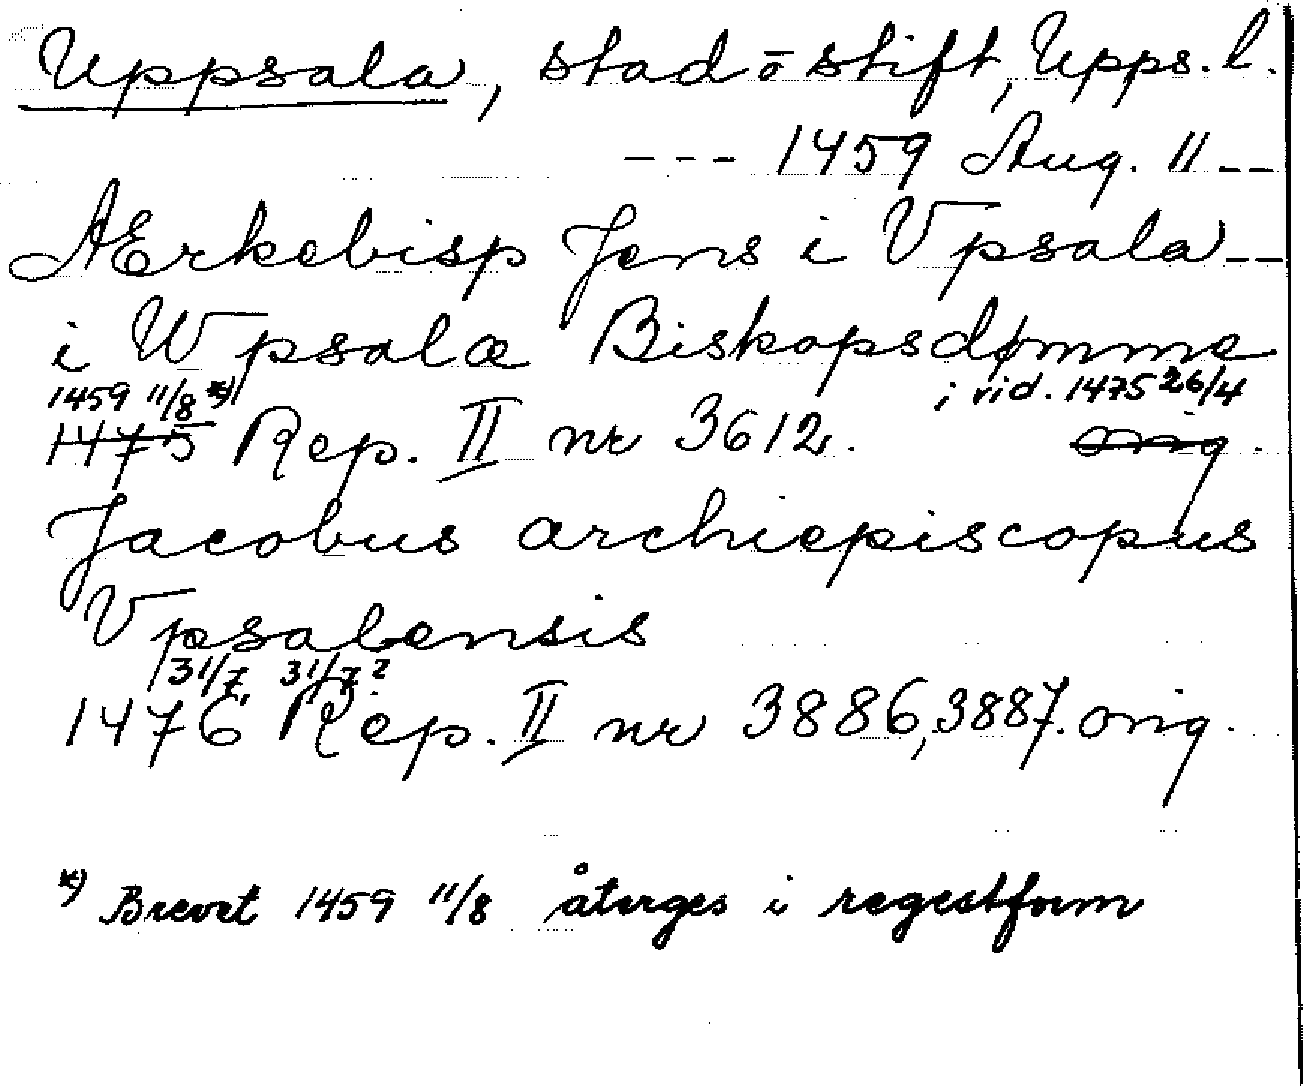 Uppsala, stad ō stift, Upps. l.
--- 1459 Aug. 11 --
AErkebisp Jens i Vpsala --
i Wpsalæ Biskopsdømme
1459 11/8 *) i vid. 1475 26/4
1475 Rep. II nr 3612. orig.
Jacobus archiepiscopus
Vpsalensis
31/7, 31/7?
1476 Rep. II nr 3886, 3887. orig.
*) Brevet 1459 11/8 återges i regestform